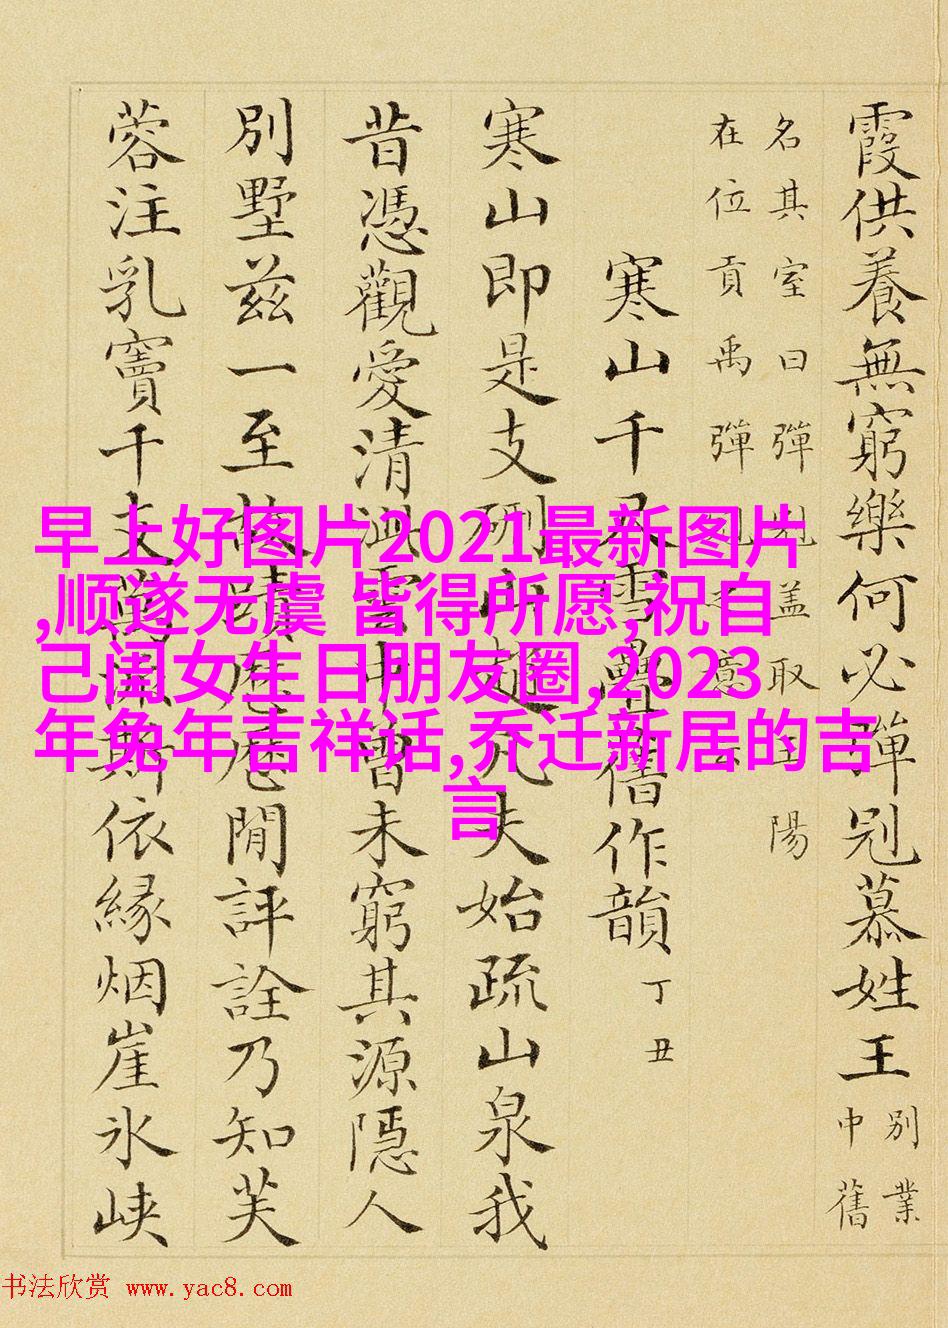 霞供養無窮樂何必彈冠慕姓王
別業
中舊
名其室曰彈冠蓋取王陽
在位貢禹彈冠之意云
寒山千尺雪疊舊作韻 丁丑
寒山即是支硎山趙凡夫始疏山泉我
昔憑觀愛清泚雲中曾未窮其源隱人
別墅茲一至故蹟歷歷閒評詮乃知芙
蓉注乳竇千支萬斯依緣烟崖氷峡
早上好图片2021最新图片
,顺遂无虞 皆得所愿,祝自
己闺女生日朋友圈,2023
年兔年吉祥话,乔迁新居的吉
言
书法欣赏 www.yac8.com